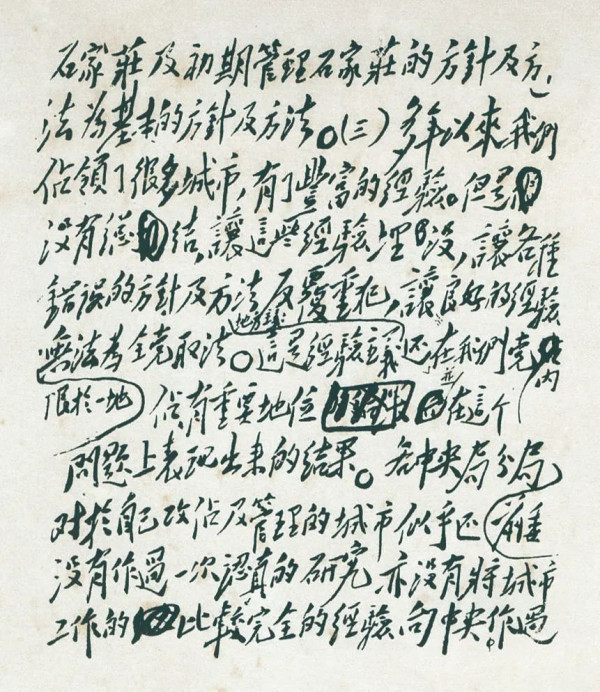 石家莊及初期管理石家莊的方針及方
法为基本的方針及方法。(三)多年以來我們
佔領了很多城市,有了豐富的經驗。但是
没有總結,讓這些經驗埋没,讓各種
錯誤的方針及方法反覆重犯,讓良好的經驗
地方
無法为全党取法。這是經驗主義还在我們党内
限於一地 佔有重要地位 並在這个
問題上表现出来的結果。各中央局分局
对於自己攻佔及管理的城市似乎还
没有作過一次認真的研究 亦没有將城市
工作的比較完全的經驗向中央作過